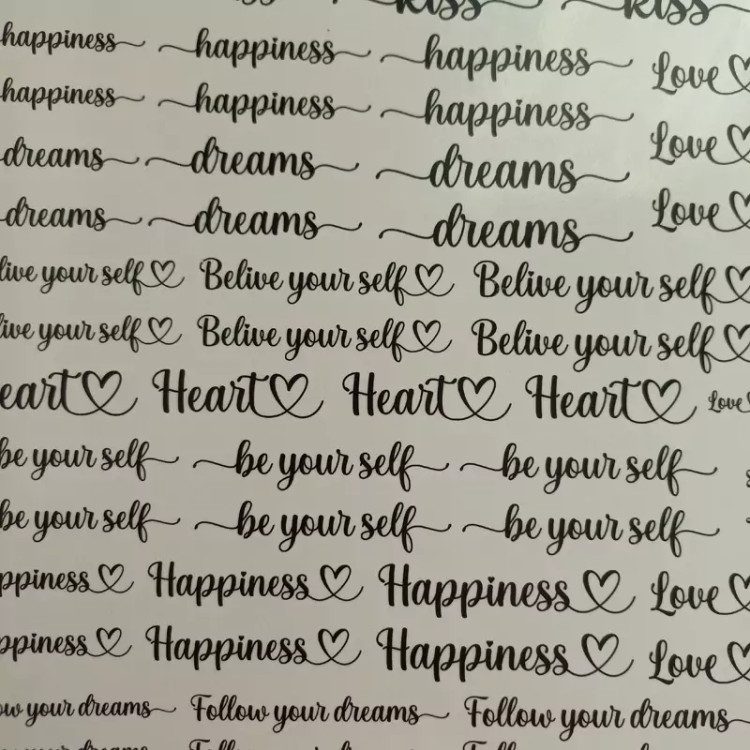 kiss kiss
happiness happiness happiness Love
happiness happiness happiness Love
dreams dreams dreams
dreams dreams dreams Love
live your self Belive your self Belive your self
ive your self Belive your self Belive your self
eart Heart Heart Heart Love
be your self be your self be your self
be your self be your self be your self
ppiness Happiness Happiness Love
ppiness Happiness Happiness Love
ow your dreams Follow your dreams Follow your dreams